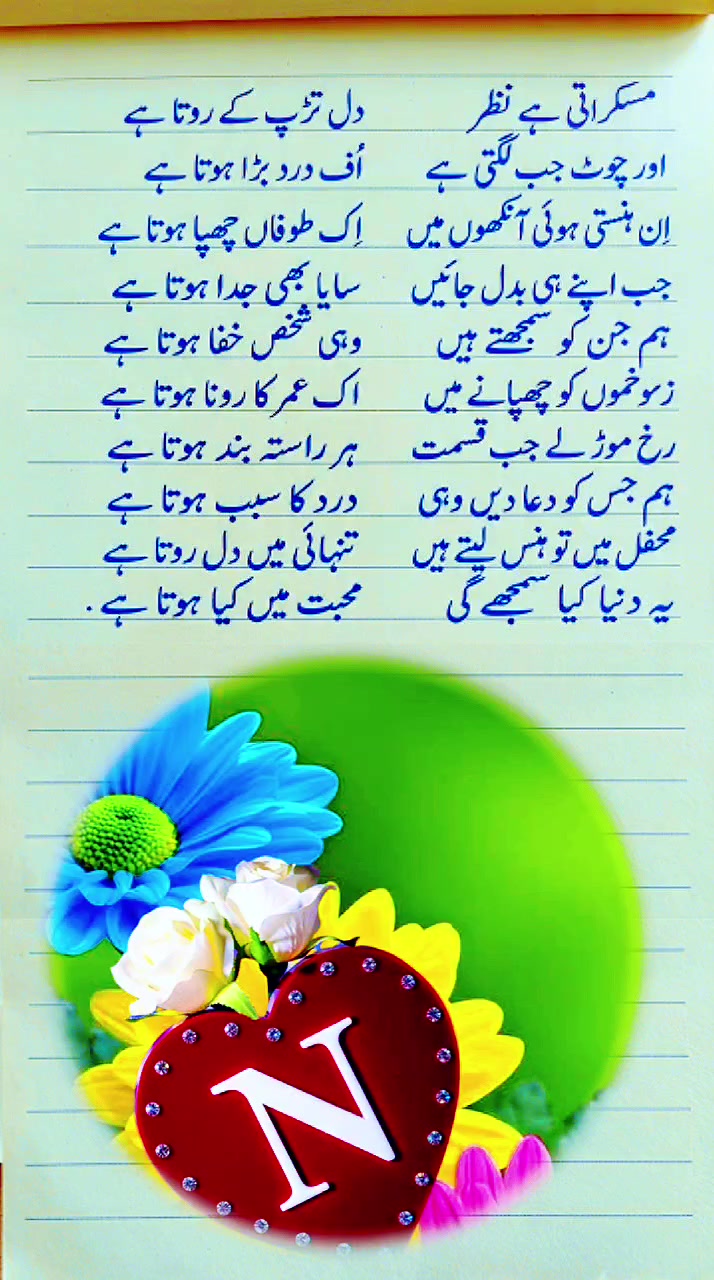 مسکراتی ہے نظر دل تڑپ کے روتا ہے
اور چوٹ جب لگتی ہے اُف درد بڑا ہوتا ہے
اِن ہنستی ہوئی آنکھوں میں اِک طوفاں چھپا ہوتا ہے
جب اپنے ہی بدل جائیں سایا بھی جدا ہوتا ہے
ہم جن کو سمجھتے ہیں وہی شخص خفا ہوتا ہے
کو چھپانے میں اک عمر کا رونا ہوتا ہے
رخ موڑ لے جب قسمت ہر راستہ بند ہوتا ہے
ہم جس کو دعا دیں وہی درد کا سبب ہوتا ہے
محفل میں تو ہنس لیتے ہیں تنہائی میں دل روتا ہے
یہ دنیا کیا سمجھے گی محبت میں کیا ہوتا ہے.
N